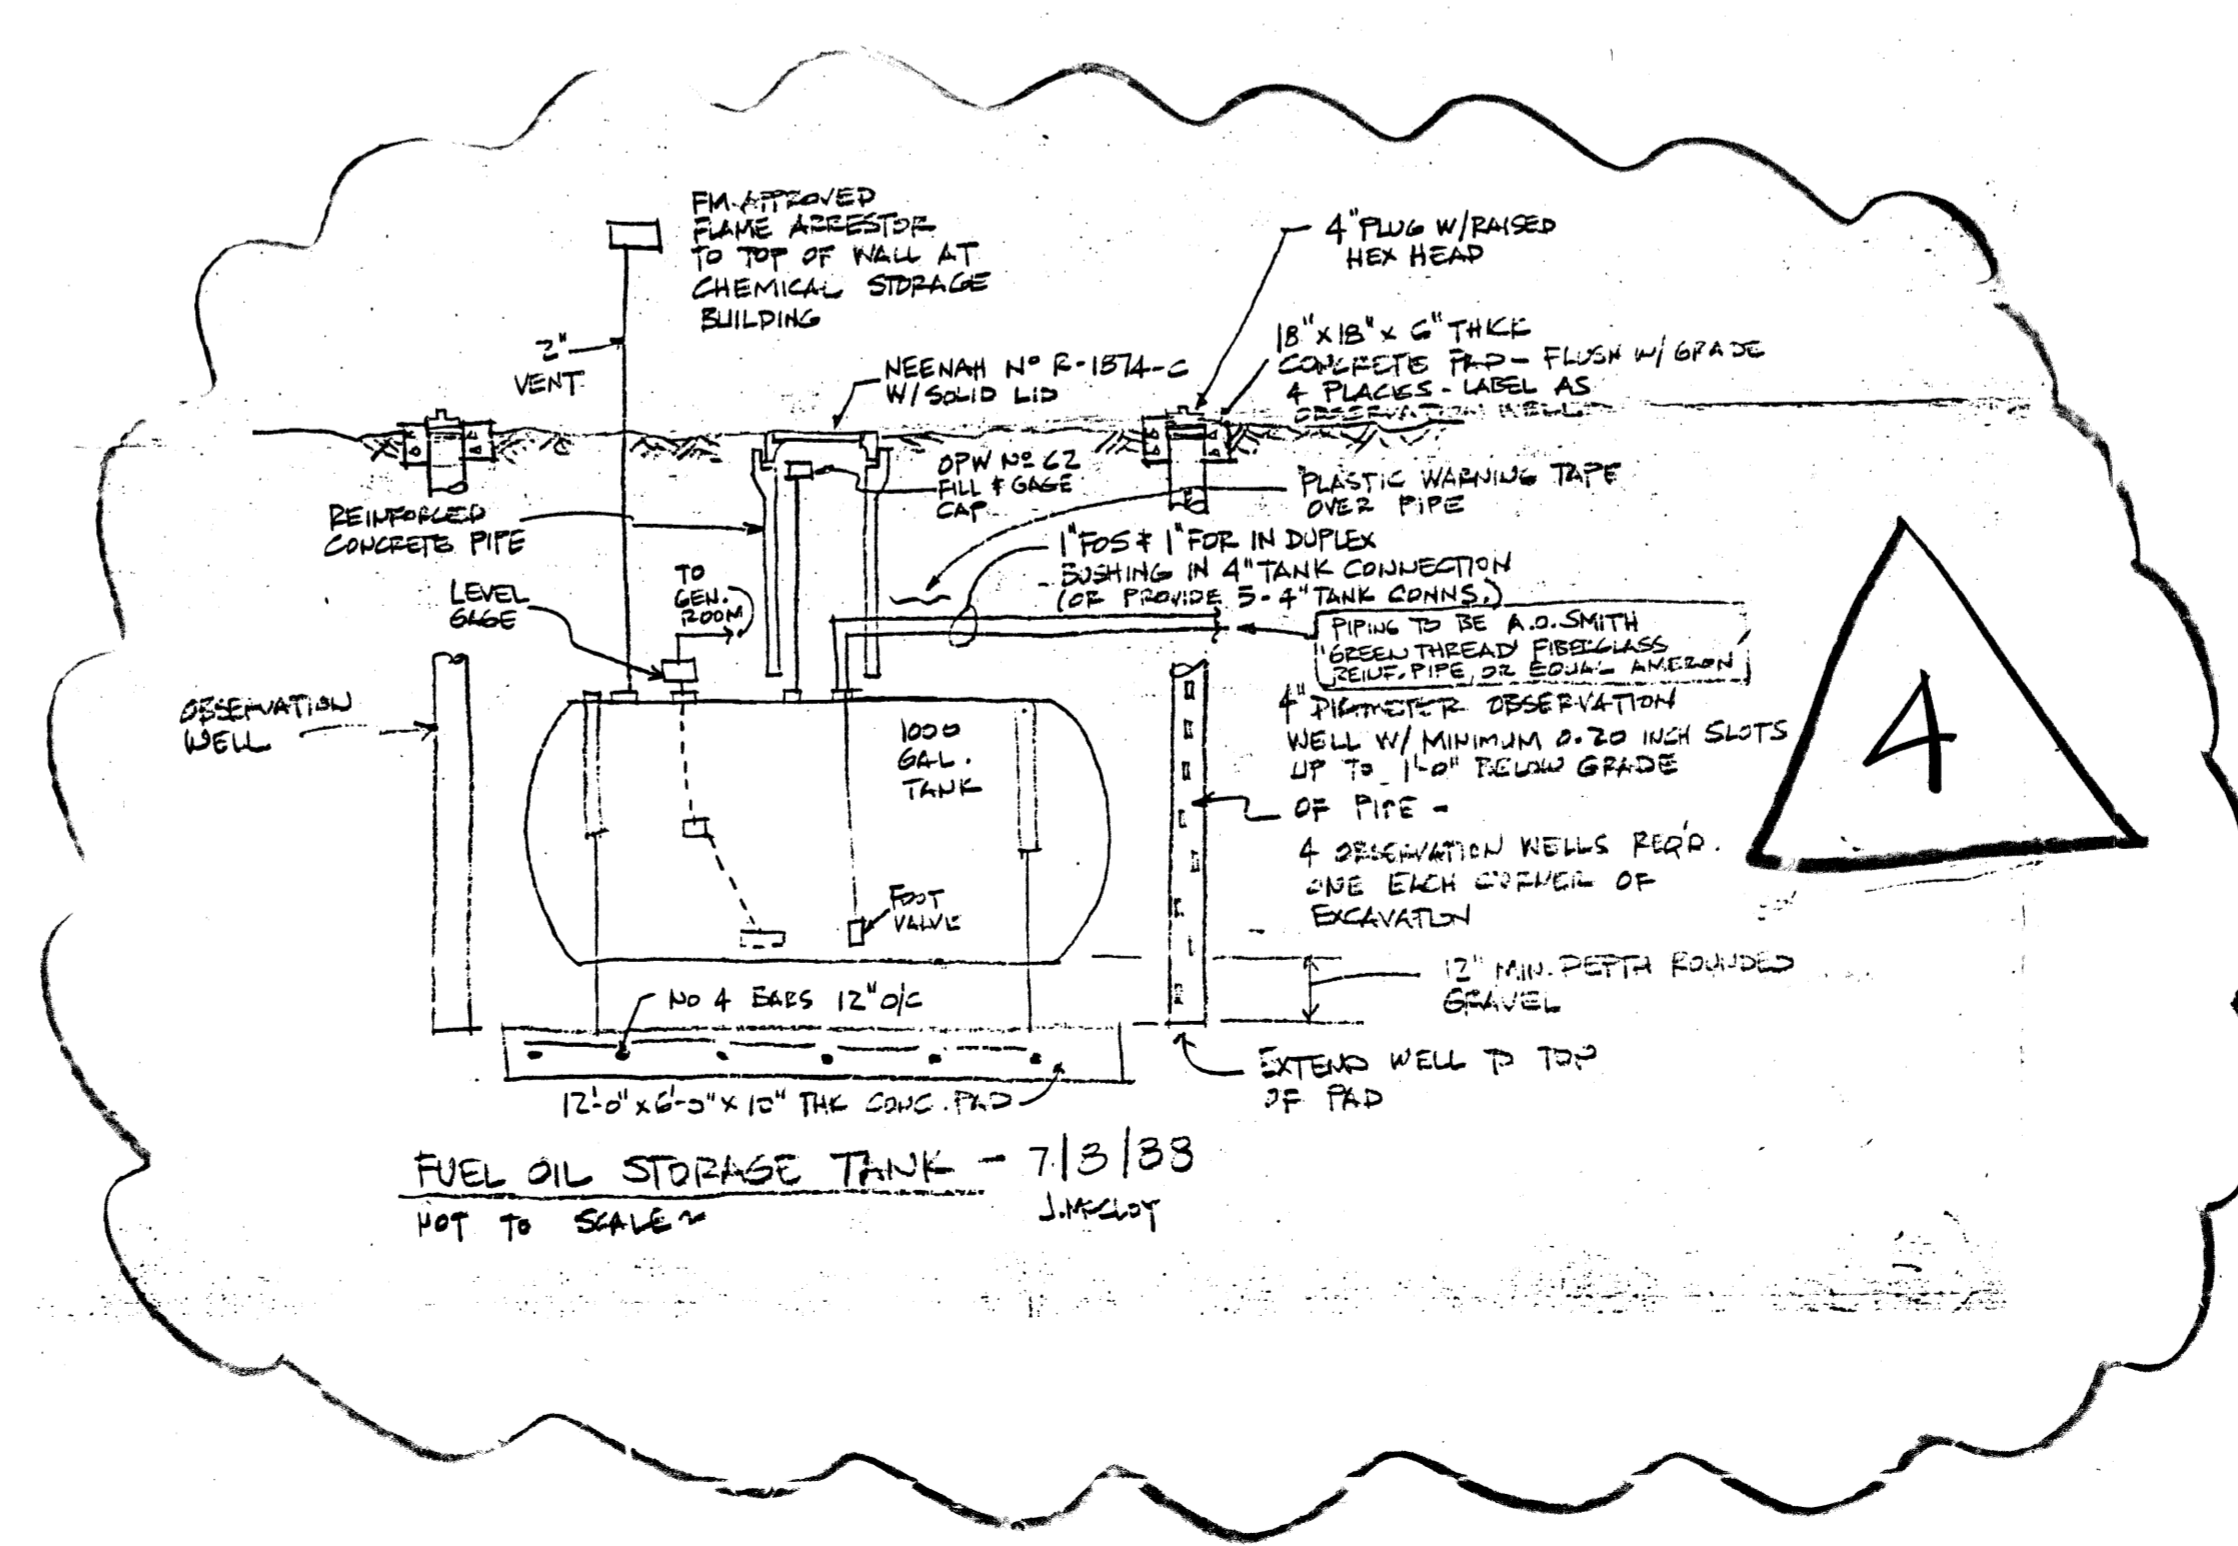 FM-APPROVED
FLAME ARRESTOR
TO TOP OF WALL AT
CHEMICAL STORAGE
BUILDING
2"
VENT
4" PLUG W/RAISED
HEX HEAD
18" x 18" x 6" THICK
CONCRETE PAD - FLUSH W/ GRADE
4 PLACES - LABEL AS
OBSERVATION WELL
NEENAH Nº R-1874-C
W/SOLID LID
OPW Nº 62
FILL & GAGE
CAP
PLASTIC WARNING TAPE
OVER PIPE
REINFORCED
CONCRETE PIPE
1" FOS & 1" FOR IN DUPLEX
BUSHING IN 4" TANK CONNECTION
(OR PROVIDE 5-4" TANK CONNS.)
TO
GEN.
ROOM
LEVEL
GAGE
PIPING TO BE A.O. SMITH
'GREEN THREAD' FIBERGLASS
REINF. PIPE, OR EQUAL AMERON
OBSERVATION
WELL
1000
GAL.
TANK
4" DIAMETER OBSERVATION
WELL W/ MINIMUM 0.20 INCH SLOTS
UP TO 1'-0" BELOW GRADE
OF PIPE -
4 OBSERVATION WELLS REQ'D.
ONE EACH CORNER OF
EXCAVATION
4
FOOT
VALVE
12" MIN. DEPTH ROUNDED
GRAVEL
NO 4 BARS 12" O/C
EXTEND WELL TO TOP
OF PAD
12'-0" x 6'-0" x 10" THK CONC. PAD
FUEL OIL STORAGE TANK - 7/8/88
NOT TO SCALE
J. McCLOY